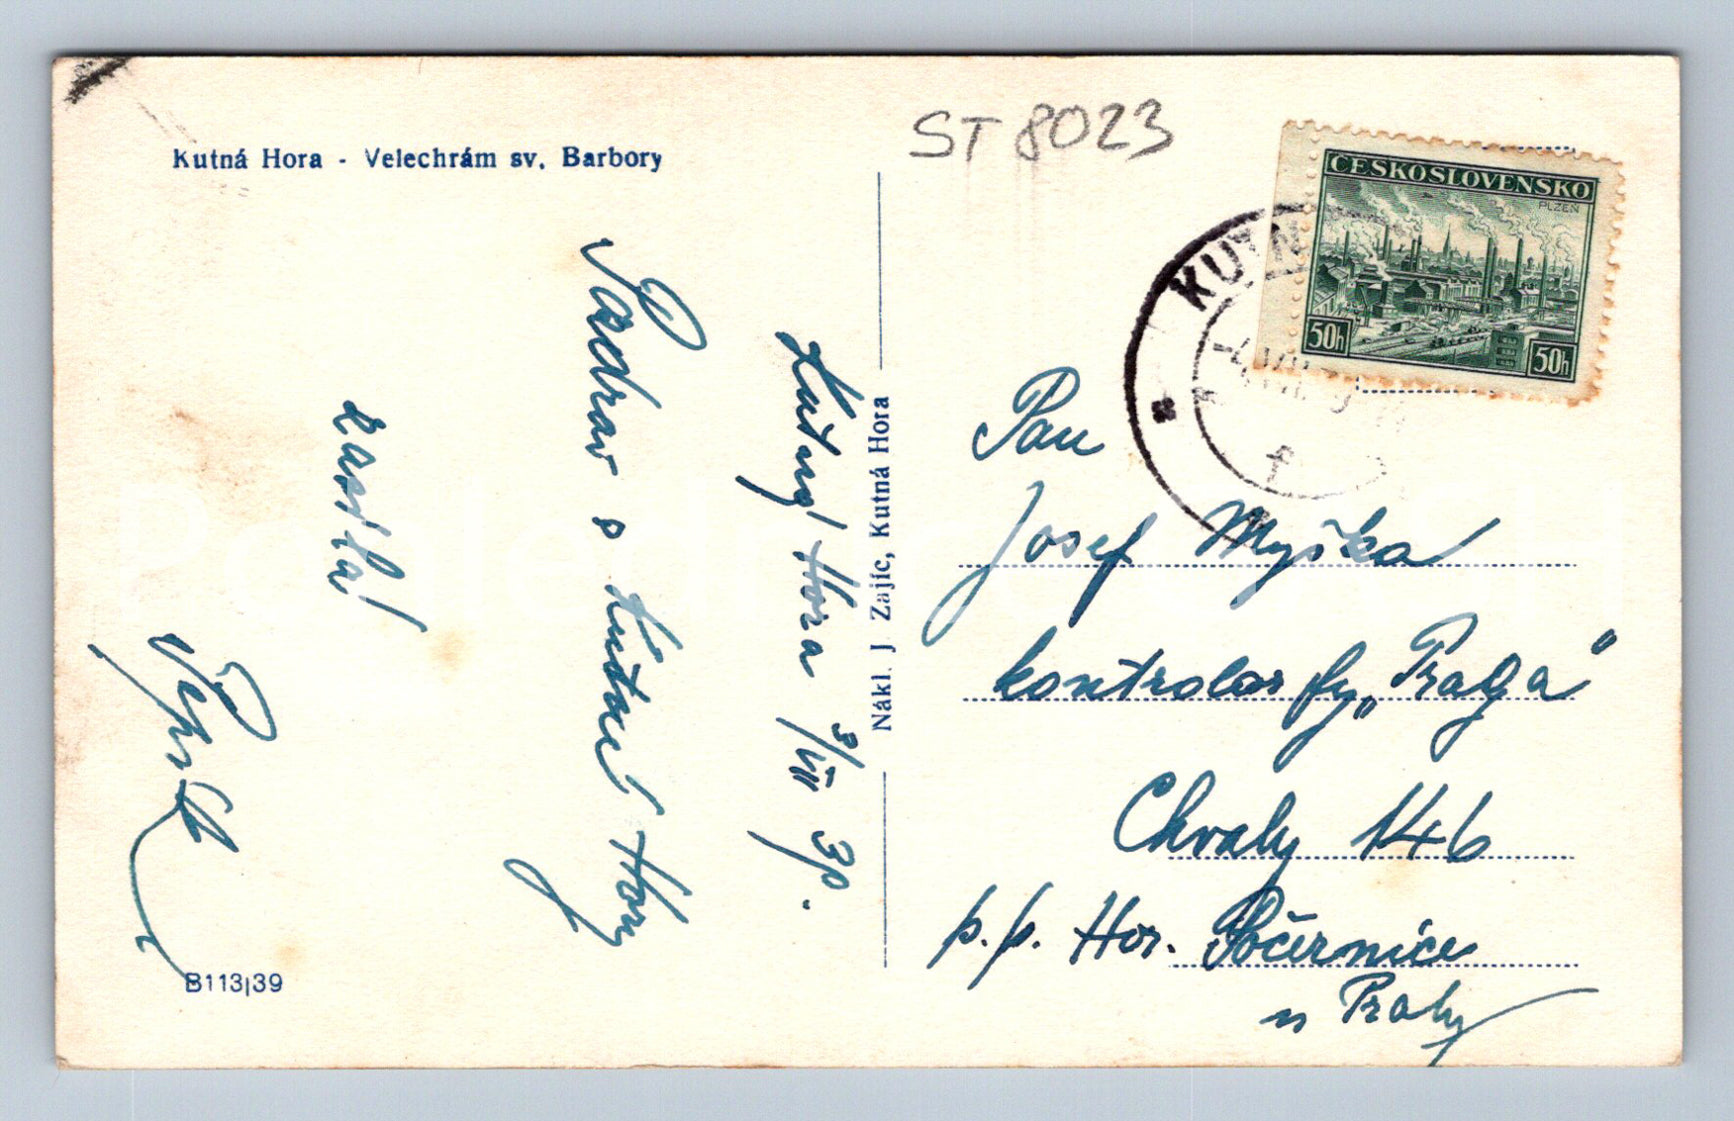 Kutná Hora - Velechrám sv. Barbory
ST 8023
ČESKOSLOVENSKO
PLZEŇ
50h
50h
KUTN
Nákl. J. Zajíc, Kutná Hora
Kutná Hora 3/VII 39.
Pozdrav s Kutné Hory
zasílá
Pepík
Pan
Josef Myška
kontrolor fy „Praga"
Chvaly 146
p. p. Hor. Počernice
u Prahy
B113|39